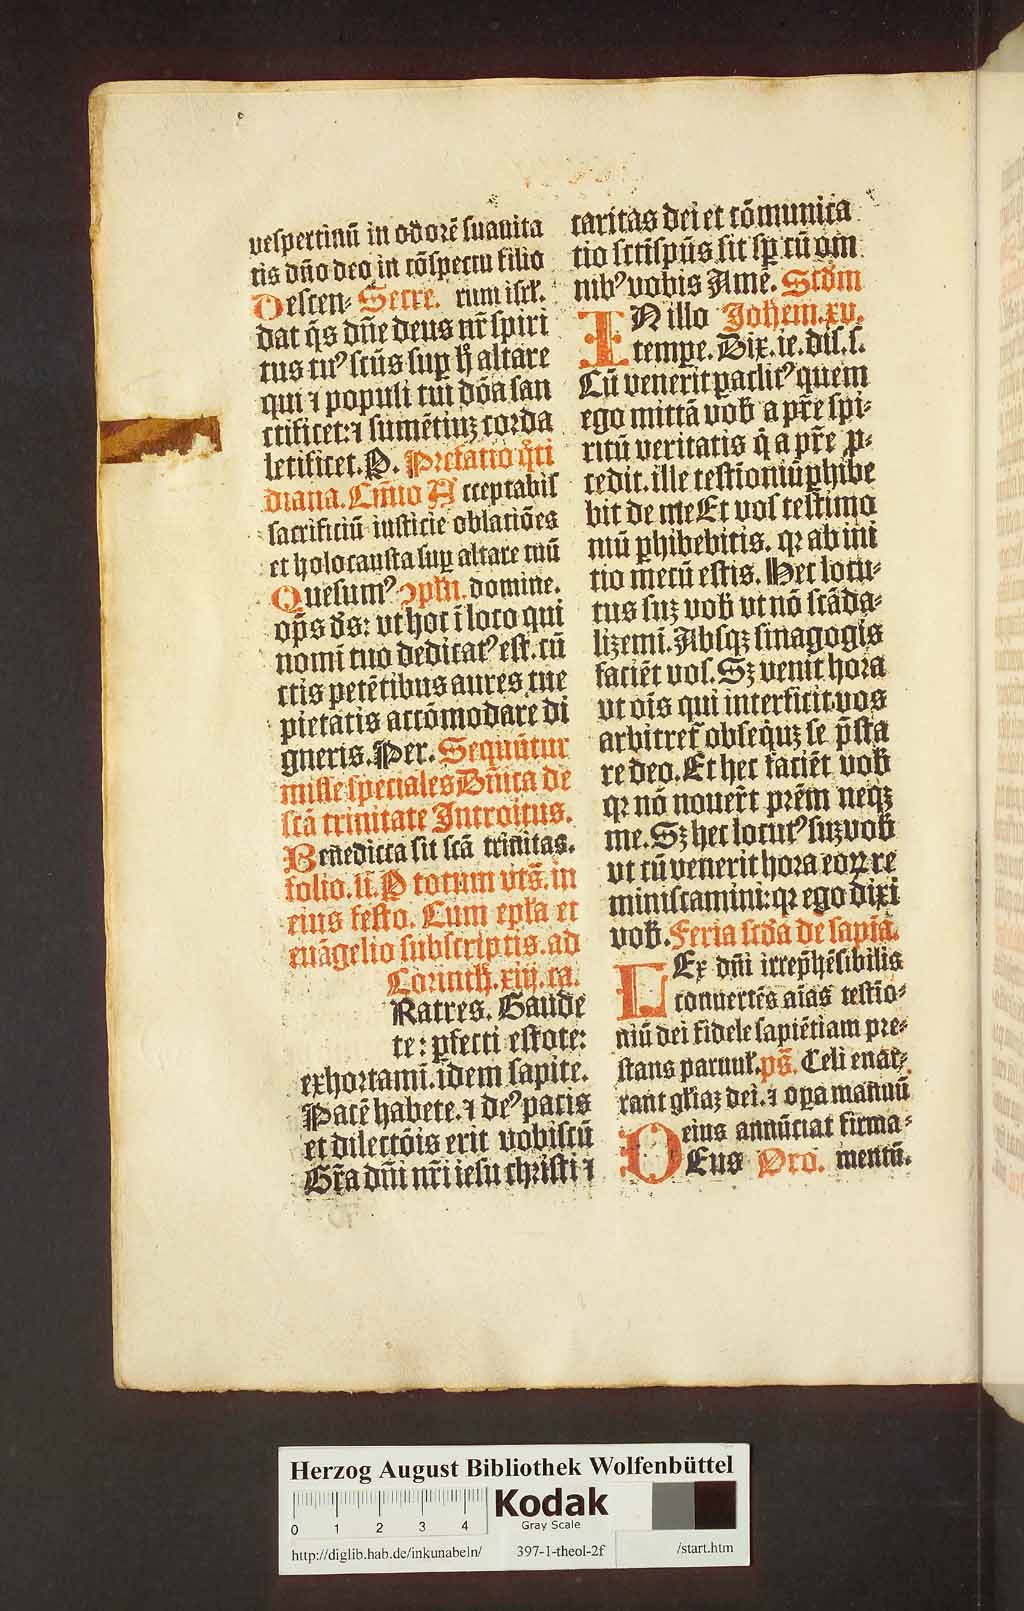 vespertinū in odorē suauita
tis dño deo in cōspectu filio
Descen- Secre. rum isrl.
dat q̄s dñe deus nr̄ spiri
tus tuꝰ scūs sup h̄ altare
qui ⁊ populi tui dōa san
ctificet: ⁊ sumētiuꝫ corda
letificet. P. Prefatio q̄ti
diana. Cōmio Acceptabis
sacrificiū iusticie oblatiōes
et holocausta sup altare tuū
Quesumꝰ ↄpln. domine.
op̄s ds: vt hoc ī loco qui
nomī tuo dedicatꝰ est. cū
ctis petētibus aures tue
pietatis accōmodare di
gneris. Per. Sequūtur
misse speciales Dñica de
scā trinitate Introitus.
Benedicta sit scā trinitas.
folio. lī. P totum vts̄. in
eius festo. Cum epl̄a et
euāgelio subscriptis. ad
Corinth. xiij. ca.
Ratres. Gaude
te: pfecti estote:
exhortamī. idem sapite.
Pacē habete. ⁊ deꝰ pacis
et dilectōis erit vobiscū
Gr̄a dñi nr̄i iesu christi ⁊
caritas dei et cōmunica
tio scti spūs sit sp cū om
nibꝰ vobis Amē. Scdm
IN illo Johem. xv.
tempe. Dix. ie. dis. s.
Cū venerit paclitꝰ quem
ego mittā vob a pr̄e spi-
ritū veritatis q̄ a pr̄e p-
cedit. ille testioniū phibe
bit de me Et vos testimo
niū phibebitis. qꝛ ab ini
tio mecū estis. Hec locu-
tus suꝫ vob vt nō scāda-
lizemī. Absqꝫ sinagogis
faciēt vos. Sꝫ venit hora
vt oīs qui interficit vos
arbitret obsequiꝫ se p̄sta
re deo. Et hec faciēt vob
qꝛ nō nouer̄t prēm neqꝫ
me. Sꝫ hec locutꝰ suꝫ vob
vt cū venerit hora eoꝝ re
miniscamini: qꝛ ego dixi
vob. Feria scda de sapīa.
LEx dñi irrep̄hēsibilis
conuertēs aīas testīo-
niū dei fidele sapiētiam pre-
stans paruul. ps̄. Celi enar-
rant gl̄iaꝫ dei. ⁊ opa manuū
eius annūciat firma-
DEus Oro. mentū.
Herzog August Bibliothek Wolfenbüttel
0 1 2 3 4
Kodak
Gray Scale
http://diglib.hab.de/inkunabeln/ 397-1-theol-2f /start.htm